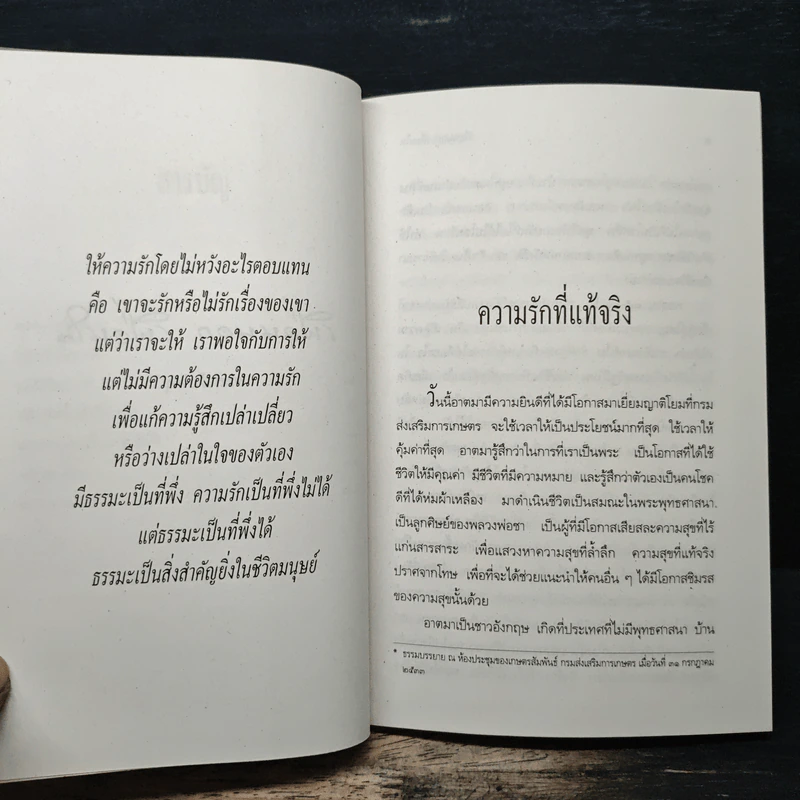 ให้ความรักโดยไม่หวังอะไรตอบแทน
คือ เขาจะรักหรือไม่รักเรื่องของเขา
แต่ว่าเราจะให้ เราพอใจกับการให้
แต่ไม่มีความต้องการในความรัก
เพื่อแก้ความรู้สึกเปล่าเปลี่ยว
หรือว่างเปล่าในใจของตัวเอง
มีธรรมะเป็นที่พึ่ง ความรักเป็นที่พึ่งไม่ได้
แต่ธรรมะเป็นที่พึ่งได้
ธรรมะเป็นสิ่งสำคัญยิ่งในชีวิตมนุษย์
ความรักที่แท้จริง
วันนี้อาตมามีความยินดีที่ได้มีโอกาสมาเยี่ยมญาติโยมที่กรม
ส่งเสริมการเกษตร จะใช้เวลาให้เป็นประโยชน์มากที่สุด ใช้เวลาให้
คุ้มค่าที่สุด อาตมารู้สึกว่าในการที่เราเป็นพระ เป็นโอกาสที่ได้ใช้
ชีวิตให้มีคุณค่า มีชีวิตที่มีความหมาย และรู้สึกว่าตัวเองเป็นคนโชค
ดีที่ได้ห่มผ้าเหลือง มาดำเนินชีวิตเป็นสมณะในพระพุทธศาสนา
เป็นลูกศิษย์ของหลวงพ่อชา เป็นผู้ที่มีโอกาสเสียสละความสุขที่ไร้
แก่นสารสาระ เพื่อแสวงหาความสุขที่ล้ำลึก ความสุขที่แท้จริง
ปราศจากโทษ เพื่อที่จะได้ช่วยแนะนำให้คนอื่น ๆ ได้มีโอกาสชิมรส
ของความสุขนั้นด้วย
อาตมาเป็นชาวอังกฤษ เกิดที่ประเทศที่ไม่มีพุทธศาสนา บ้าน
* ธรรมบรรยาย ณ ห้องประชุมของเกษตรสัมพันธ์ กรมส่งเสริมการเกษตร เมื่อวันที่ ๓๑ กรกฎาคม
๒๕๓๓